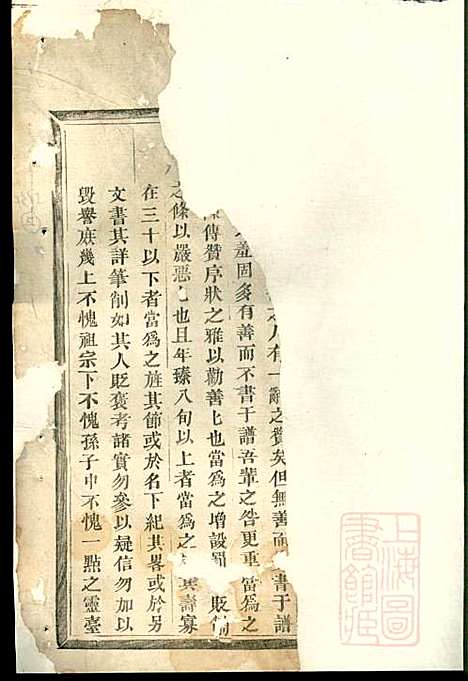 之人有一辭之贊矣但無善而書于譜
羞固多有善而不書于譜吾輩之咎更重當為之
傳贊序狀之雅以勸善也當為之增設
之條以嚴惡也且年臻八旬以上者當為之其壽寡
在三十以下者當為之旌其節或於名下紀其畧或於另
文書其詳筆削如其人貶褒考諸實勿參以疑信勿加以
毀譽庶幾上不愧祖宗下不愧孫子中不愧一點之靈臺
上海圖書館藏